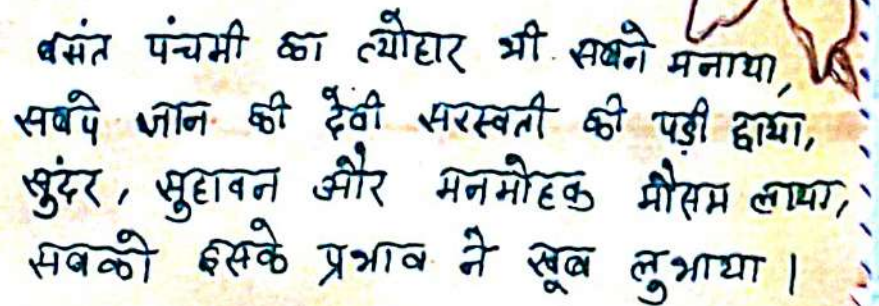 बसंत पंचमी का त्योहार भी सबने मनाया,
सबपे ज्ञान की देवी सरस्वती की पड़ी छाया,
सुंदर, सुहावन और मनमोहक मौसम लाया,
सबको इसके प्रभाव ने खूब लुभाया।